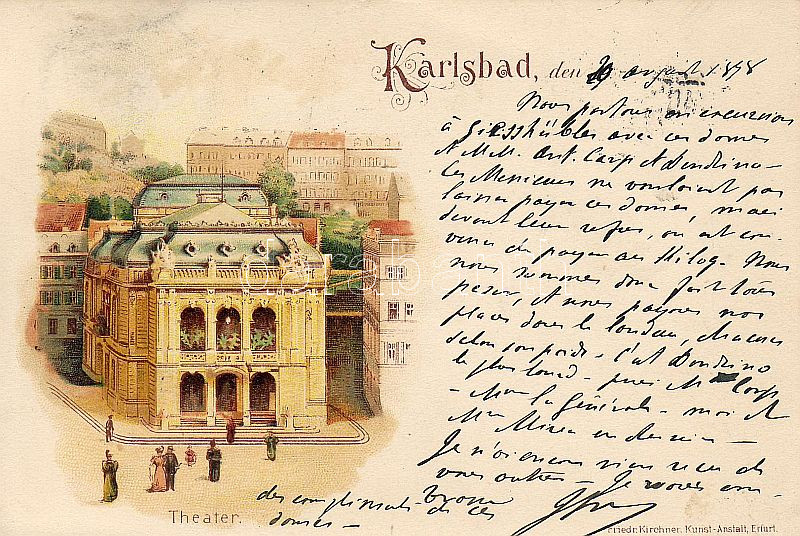 Karlsbad, den 29 août 1898
Nous partons en excursion
à Giesshübler avec ces dames
et MM. Ant. Carp et Dendrino —
Ces Messieurs ne voulaient pas
laisser payer ces dames, mais
devant leur refus, on est con-
venu de payer au Kilog. Nous
nous sommes donc fait tous
peser, et nous payons nos
places dans le landau, chacun
selon son poids. C'est Dendrino
le plus lourd — puis Mme Carp
— Mme la Générale — moi et
Mme en dernier —
Je n'ai encore rien reçu de
vous autres — Je vous en-
des compliments de ces
dames —
Theater.
Friedr. Kirchner, Kunst-Anstalt, Erfurt.